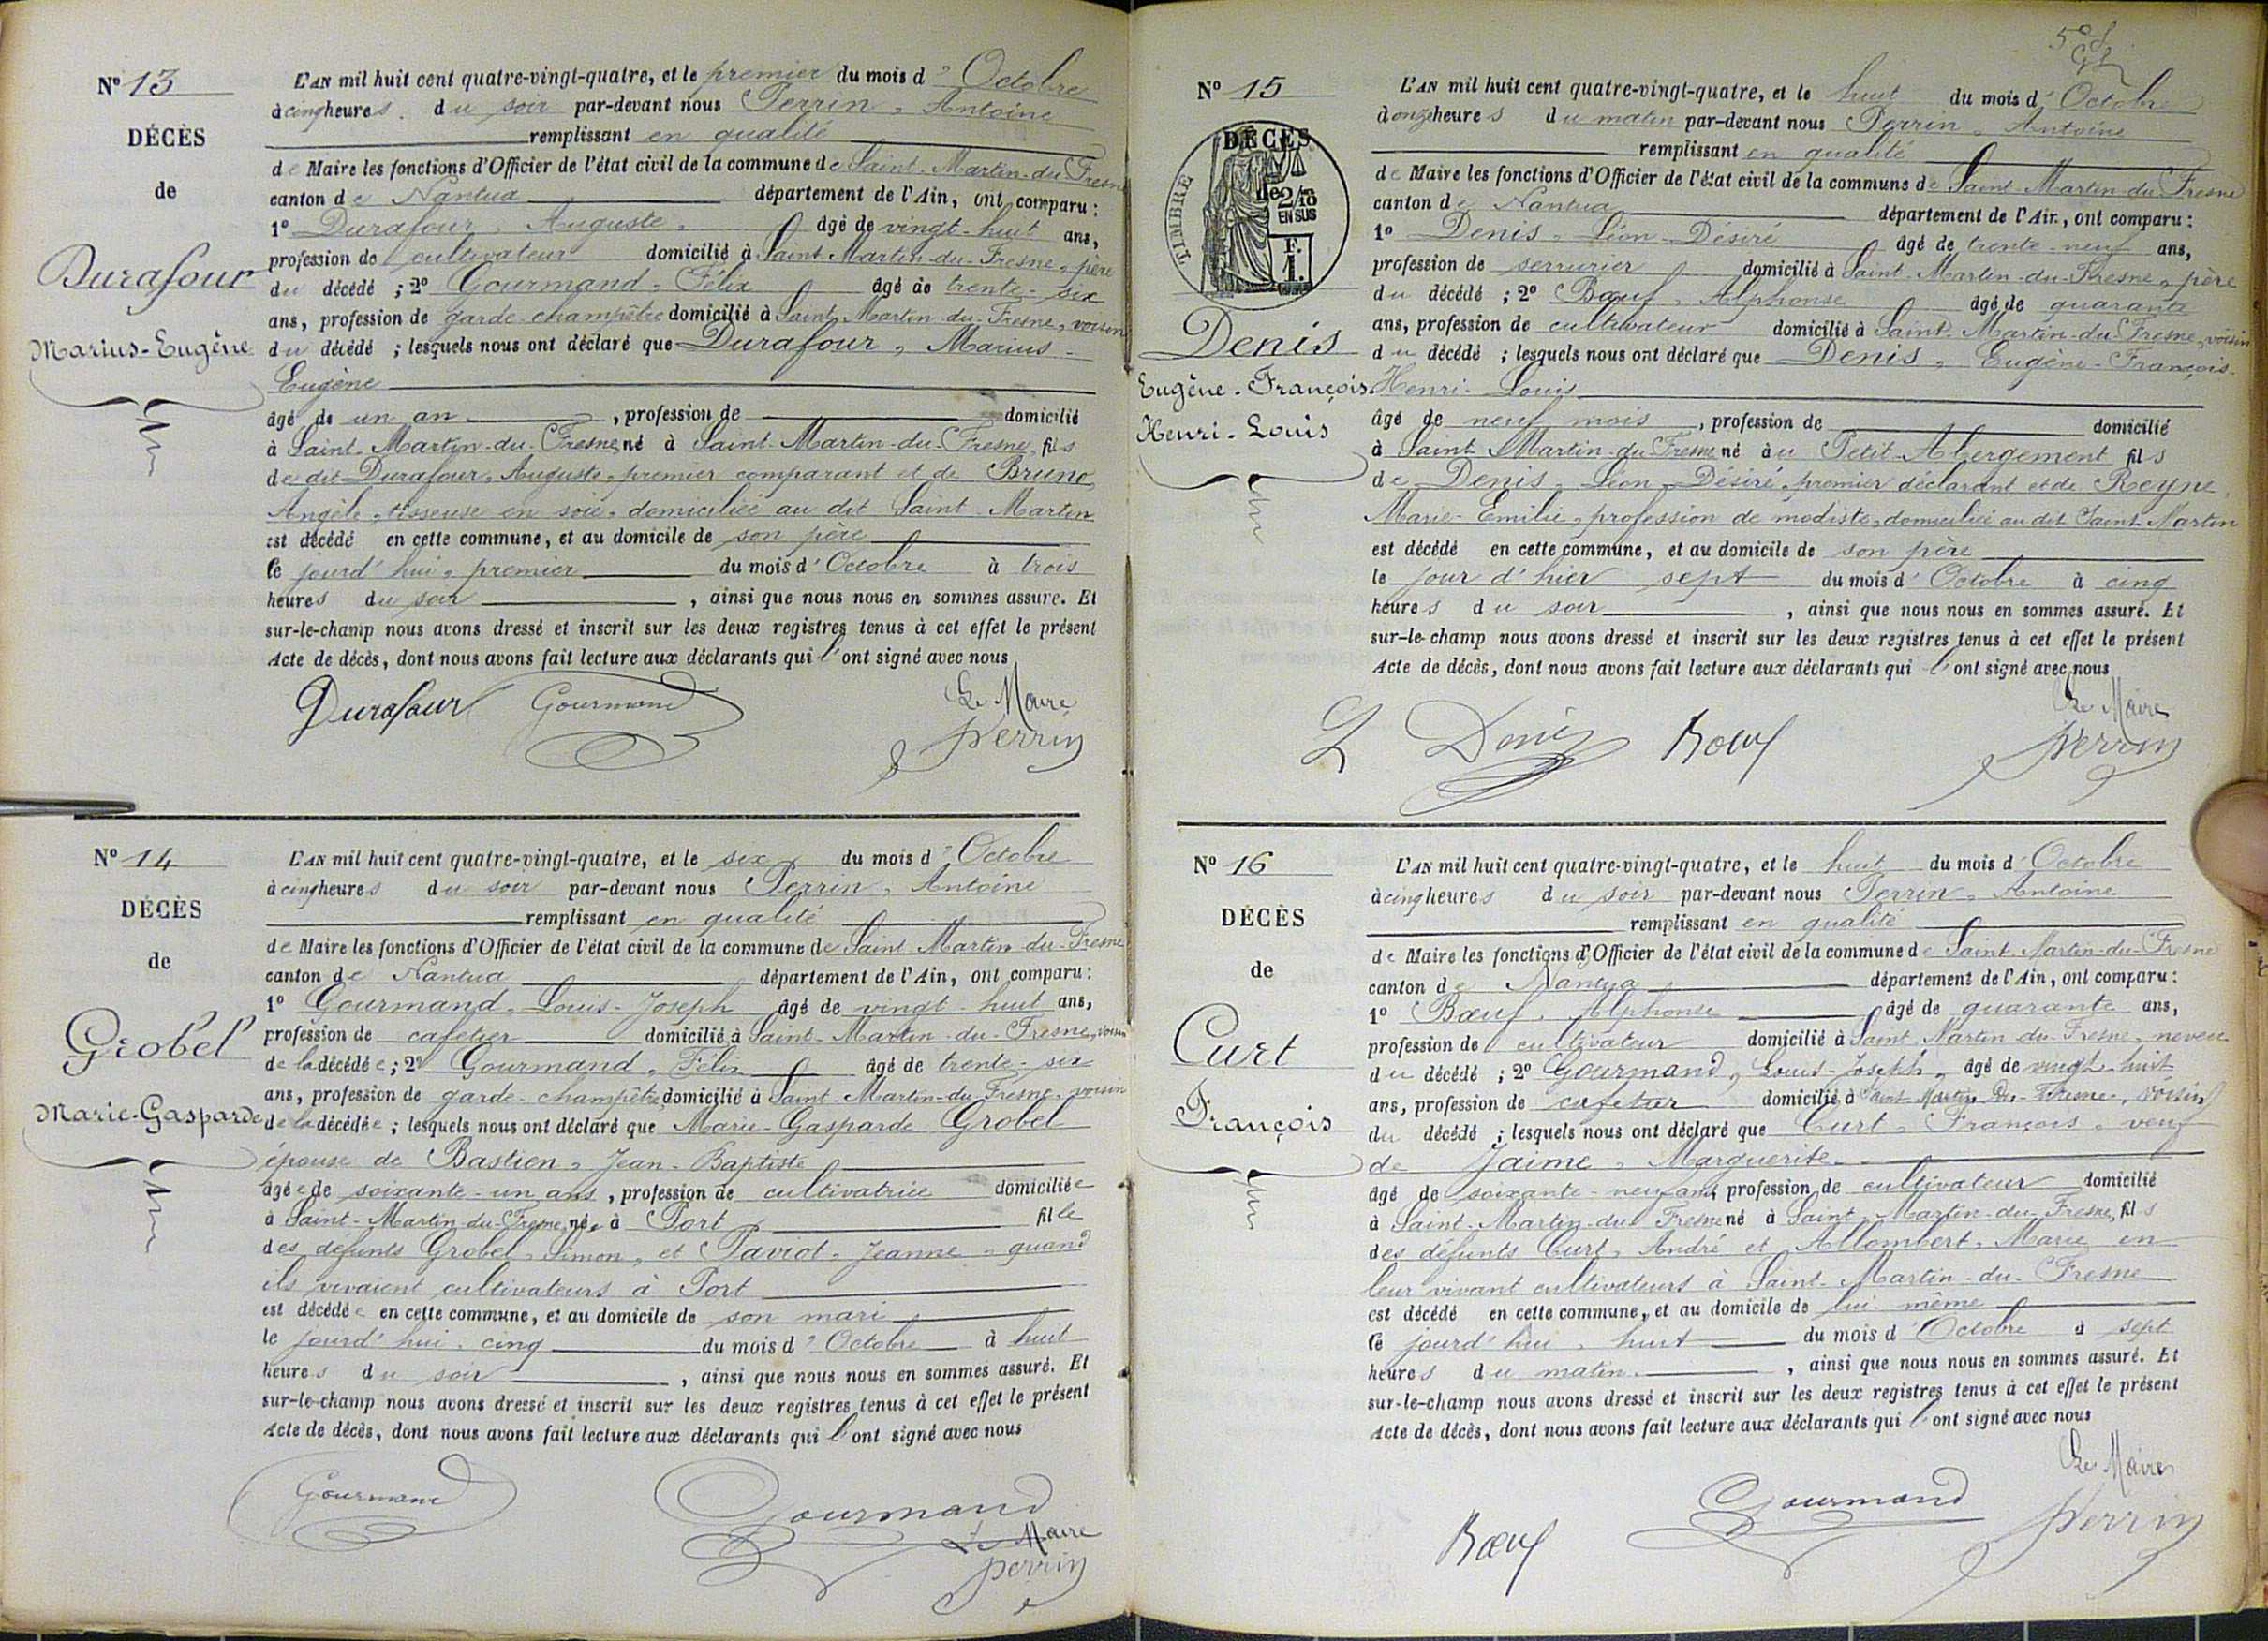 Nº 13
DÉCÈS
de
Durafour
Marius-Eugène
L'AN mil huit cent quatre-vingt-quatre, et le premier du mois d'Octobre
à cinq heures du soir par-devant nous Perrin, Antoine
remplissant en qualité
de Maire les fonctions d'Officier de l'état civil de la commune de Saint-Martin-du-Fresne
canton de Nantua département de l'Ain, ont comparu :
1º Durafour, Auguste, âgé de vingt-huit ans,
profession de cultivateur domicilié à Saint-Martin-du-Fresne, père
du décédé ; 2º Gourmand, Félix âgé de trente-six
ans, profession de garde-champêtre domicilié à Saint-Martin-du-Fresne, voisin
du décédé ; lesquels nous ont déclaré que Durafour, Marius-
Eugène
âgé de un an, profession de domicilié
à Saint-Martin-du-Fresne né à Saint-Martin-du-Fresne, fils
de dit Durafour, Auguste, premier comparant et de Bruno
Angèle, tisseuse en soie, domiciliée au dit Saint-Martin
est décédé en cette commune, et au domicile de son père
le jourd'hui, premier du mois d'Octobre à trois
heures du soir, ainsi que nous nous en sommes assuré. Et
sur-le-champ nous avons dressé et inscrit sur les deux registres tenus à cet effet le présent
Acte de décès, dont nous avons fait lecture aux déclarants qui l'ont signé avec nous
Durafour Gourmand Le Maire
Perrin
Nº 14
DÉCÈS
de
Grobel
Marie-Gasparde
L'AN mil huit cent quatre-vingt-quatre, et le six du mois d'Octobre
à cinq heures du soir par-devant nous Perrin, Antoine
remplissant en qualité
de Maire les fonctions d'Officier de l'état civil de la commune de Saint-Martin-du-Fresne
canton de Nantua département de l'Ain, ont comparu :
1º Gourmand, Louis-Joseph âgé de vingt-huit ans,
profession de cafetier domicilié à Saint-Martin-du-Fresne, voisin
de la décédée ; 2º Gourmand, Félix âgé de trente-six
ans, profession de garde-champêtre domicilié à Saint-Martin-du-Fresne, voisin
de la décédée ; lesquels nous ont déclaré que Marie-Gasparde Grobel
épouse de Bastien, Jean-Baptiste
âgée de soixante-un ans, profession de cultivatrice domiciliée
à Saint-Martin-du-Fresne, née à Port fille
des défunts Grobel, Simon, et Paviot, Jeanne, quand
ils vivaient cultivateurs à Port
est décédée en cette commune, et au domicile de son mari
le jourd'hui, cinq du mois d'Octobre à huit
heures du soir, ainsi que nous nous en sommes assuré. Et
sur-le-champ nous avons dressé et inscrit sur les deux registres tenus à cet effet le présent
Acte de décès, dont nous avons fait lecture aux déclarants qui l'ont signé avec nous
Gourmand Gourmand
Le Maire
Perrin
Nº 15
DÉCÈS
TIMBRE
2/10
EN SUS
F.
1.
Denis
Eugène-François
Henri-Louis
L'AN mil huit cent quatre-vingt-quatre, et le huit du mois d'Octobre
à onze heures du matin par-devant nous Perrin, Antoine
remplissant en qualité
de Maire les fonctions d'Officier de l'état civil de la commune de Saint-Martin-du-Fresne
canton de Nantua département de l'Ain, ont comparu :
1º Denis, Léon-Désiré âgé de trente-neuf ans,
profession de serrurier domicilié à Saint-Martin-du-Fresne, père
du décédé ; 2º Bœuf, Alphonse âgé de quarante
ans, profession de cultivateur domicilié à Saint-Martin-du-Fresne, voisin
du décédé ; lesquels nous ont déclaré que Denis, Eugène-François-
Henri-Louis
âgé de neuf mois, profession de domicilié
à Saint Martin-du-Fresne né au Petit-Abergement fils
de Denis, Léon-Désiré, premier déclarant et de Reyne,
Marie-Emilie, profession de modiste, domiciliée au dit Saint-Martin
est décédé en cette commune, et au domicile de son père
le jour d'hier sept du mois d'Octobre à cinq
heures du soir, ainsi que nous nous en sommes assuré. Et
sur-le-champ nous avons dressé et inscrit sur les deux registres tenus à cet effet le présent
Acte de décès, dont nous avons fait lecture aux déclarants qui l'ont signé avec nous
L Denis Bœuf Le Maire
Perrin
Nº 16
DÉCÈS
de
Curt
François
L'AN mil huit cent quatre-vingt-quatre, et le huit du mois d'Octobre
à cinq heures du soir par-devant nous Perrin, Antoine
remplissant en qualité
de Maire les fonctions d'Officier de l'état civil de la commune de Saint-Martin-du-Fresne
canton de Nantua département de l'Ain, ont comparu :
1º Bœuf, Alphonse âgé de quarante ans,
profession de cultivateur domicilié à Saint-Martin-du-Fresne, neveu
du décédé ; 2º Gourmand, Louis-Joseph, âgé de vingt-huit
ans, profession de cafetier domicilié à Saint-Martin-Du-Fresne, voisin
du décédé ; lesquels nous ont déclaré que Curt, François, veuf
de Jaime, Marguerite
âgé de soixante-neuf ans, profession de cultivateur domicilié
à Saint-Martin-du-Fresne né à Saint-Martin-du-Fresne, fils
des défunts Curt, André et Allombert, Marie en
leur vivant cultivateurs à Saint-Martin-du-Fresne
est décédé en cette commune, et au domicile de lui-même
le jourd'hui, huit du mois d'Octobre à sept
heures du matin, ainsi que nous nous en sommes assuré. Et
sur-le-champ nous avons dressé et inscrit sur les deux registres tenus à cet effet le présent
Acte de décès, dont nous avons fait lecture aux déclarants qui l'ont signé avec nous
Le Maire
Bœuf Gourmand Perrin